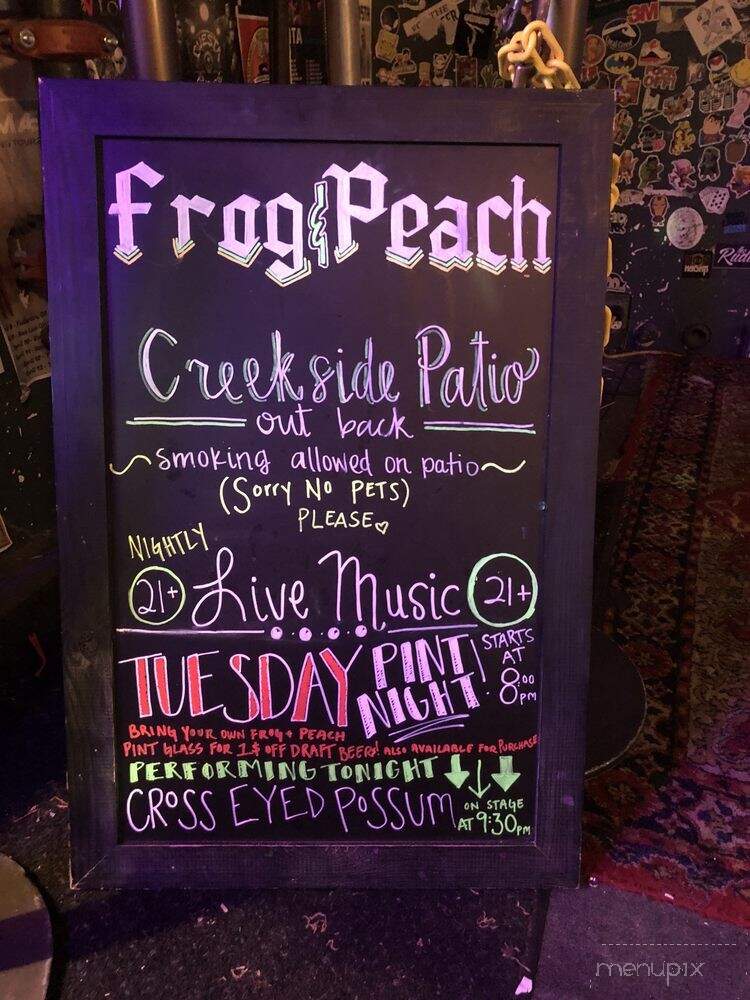 Frog & Peach
Creekside Patio
out back
~smoking allowed on patio~
(Sorry No PETS)
PLEASE♡
NIGHTLY
21+ Live Music 21+
TUESDAY PINT NIGHT! STARTS AT 8:00 PM
BRING YOUR OWN FROG + PEACH
PINT GLASS FOR 1$ OFF DRAFT BEERS! ALSO AVAILABLE FOR PURCHASE
PERFORMING TONIGHT ↓↓↓
CROSS EYED POSSUM ON STAGE AT 9:30 PM
3M
menupix